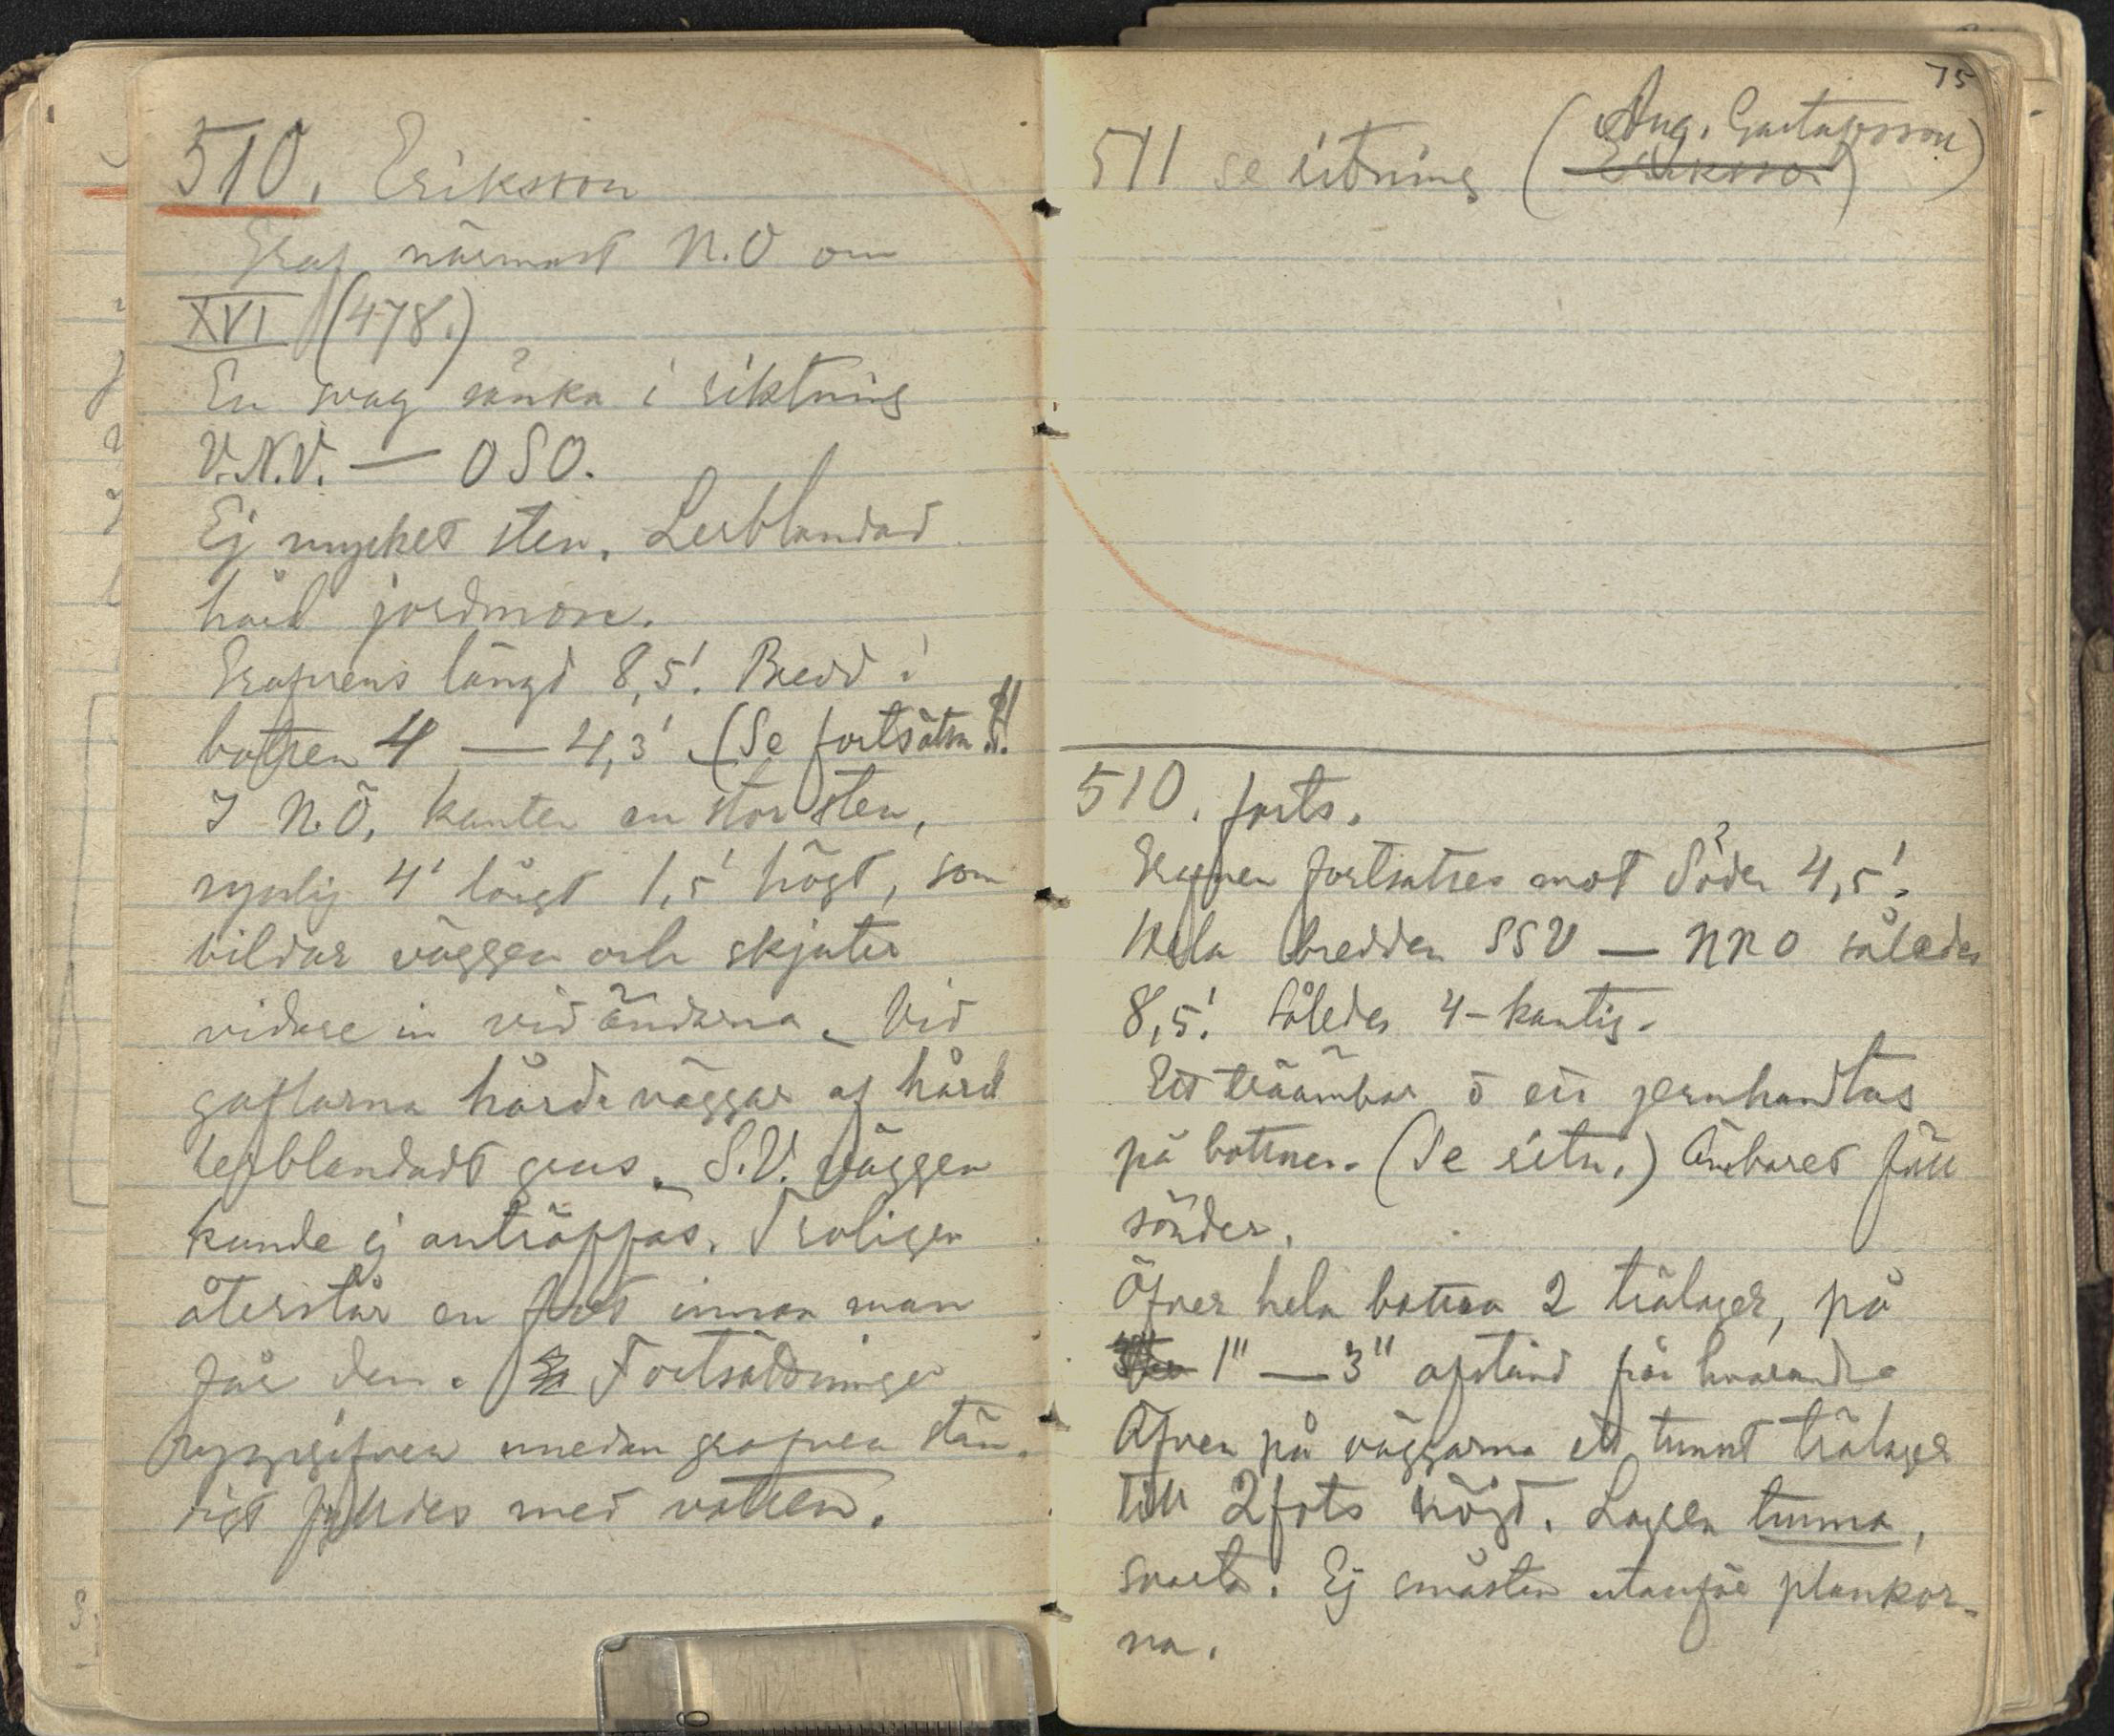 510. Eriksson
Graf närmast N.O om
XVI (478.)
En svag sänka i riktning
V.N.V. — OSO.
Ej mycket sten. Lerblandad
hård jordmon.
Grafvens längd 8,5'. Bredd i
botten 4 — 4,3' (Se fortsättn!!
I N.Ö. kanten en stor sten,
synlig 4' långt 1,5' högt, som
bildar väggen och skjuter
vidare in vid ändarna. Vid
gaflarna hårda väggar af hård
lerblandadt grus. S.V. väggen
kunde ej anträffas. Troligen
återstår en fot innan man
får den. Fortsättningen
uppgifven emedan grafven stän-
digt fylldes med vatten.
75
511 se ritning (Aug. Gustafsson)
Eriksson)
510. forts.
Grafven fortsattes mot Söder 4,5'.
Hela bredden SSV — NNO således
8,5'. Således 4-kantig.
Ett träämbar o ett jernhandtag
på bottnen. (Se ritn.) Ämbaret föll
sönder.
Öfver hela botten 2 trälager, på
1" — 3" afstånd från hvarandra
Äfven på väggarna ett tunnt trälager
till 2 fots höjd. Lagren tunna,
svarta. Ej småsten utanför plankor-
na.